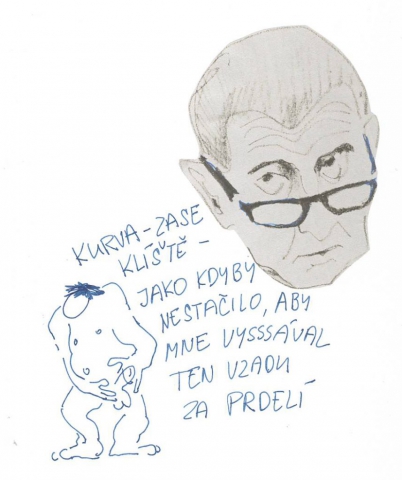 KURVA-ZASE
KLÍŠTĚ -
JAKO KDYBY
NESTAČILO, ABY
MNE VYSSSÁVAL
TEN VZADU
ZA PRDELÍ